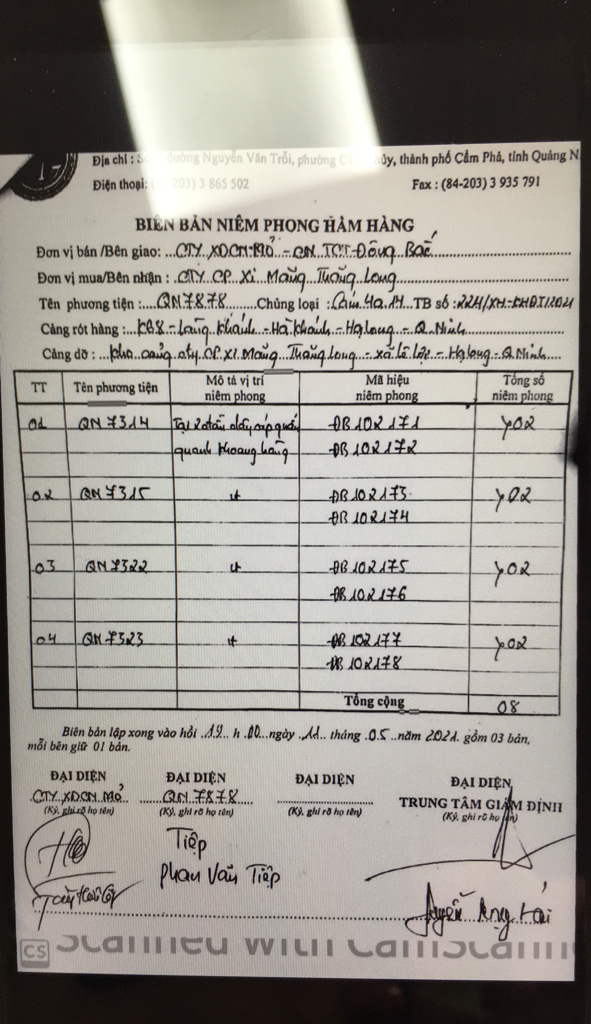 Địa chỉ : đường Nguyễn Văn Trỗi, phường thủy, thành phố Cẩm Phả, tỉnh Quảng N
Điện thoại: 203) 3 865 502 Fax : (84-203) 3 935 791
BIÊN BẢN NIÊM PHONG HẦM HÀNG
Đơn vị bán /Bên giao: CTY XDCN Mỏ - QN TCT Đông Bắc
Đơn vị mua/Bên nhận : CTY CP Xi Măng Thăng Long
Tên phương tiện : QN7878 Chủng loại : Cám 4a.14 TB số : 224/XM-KHĐT/2021
Cảng rót hàng : KB8 - Làng Khánh - Hà Khánh - Hạ Long - Q. Ninh
Cảng dỡ : kho cảng cty CP Xi Măng Thăng Long - xã Lê Lợi - Hạ Long - Q Ninh
TT Tên phương tiện Mô tả vị trí niêm phong Mã hiệu niêm phong Tổng số niêm phong
01 QN 7314 Tại 2 đầu dây cáp quấn ĐB 102171 02
quanh khoang hàng ĐB 102172
02 QN 7315 nt ĐB 102173 02
ĐB 102174
03 QN 7322 nt ĐB 102175 02
ĐB 102176
04 QN 7323 nt ĐB 102177 02
ĐB 102178
Tổng cộng 08
Biên bản lập xong vào hồi 19 h 00 ngày 11 tháng 05 năm 2021. gồm 03 bản,
mỗi bên giữ 01 bản.
ĐẠI DIỆN ĐẠI DIỆN ĐẠI DIỆN ĐẠI DIỆN
CTY XDCN Mỏ QN 7878 TRUNG TÂM GIÁM ĐỊNH
(Ký, ghi rõ họ tên) (Ký, ghi rõ họ tên) (Ký, ghi rõ họ tên) (Ký, ghi rõ họ tên)
Tiệp
Phan Văn Tiệp
CS Scanned with CamScann